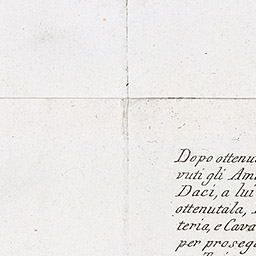 Dopo ottenu
vuti gli Am
Daci, a lui
ottenutala,
teria, e Cava
per proseg